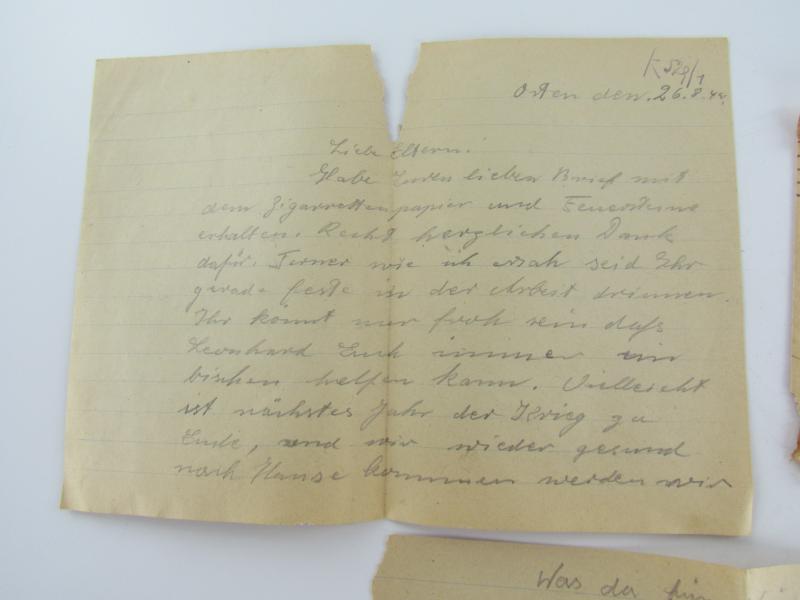 Osten den. 26.8.44.
Liebe Eltern!
Habe Euren lieben Brief mit
dem Zigarrettenpapier und Feuersteine
erhalten. Recht herzlichen Dank
dafür. Ferner wie ich ersah seid Ihr
gerade feste in der Arbeit drinnen.
Ihr könnt nur froh sein daß
Leonhard Euch immer ein
bischen helfen kann. Vielleicht
ist nächstes Jahr der Krieg zu
Ende, und wir wieder gesund
nach Hause kommen werden wir
Was da